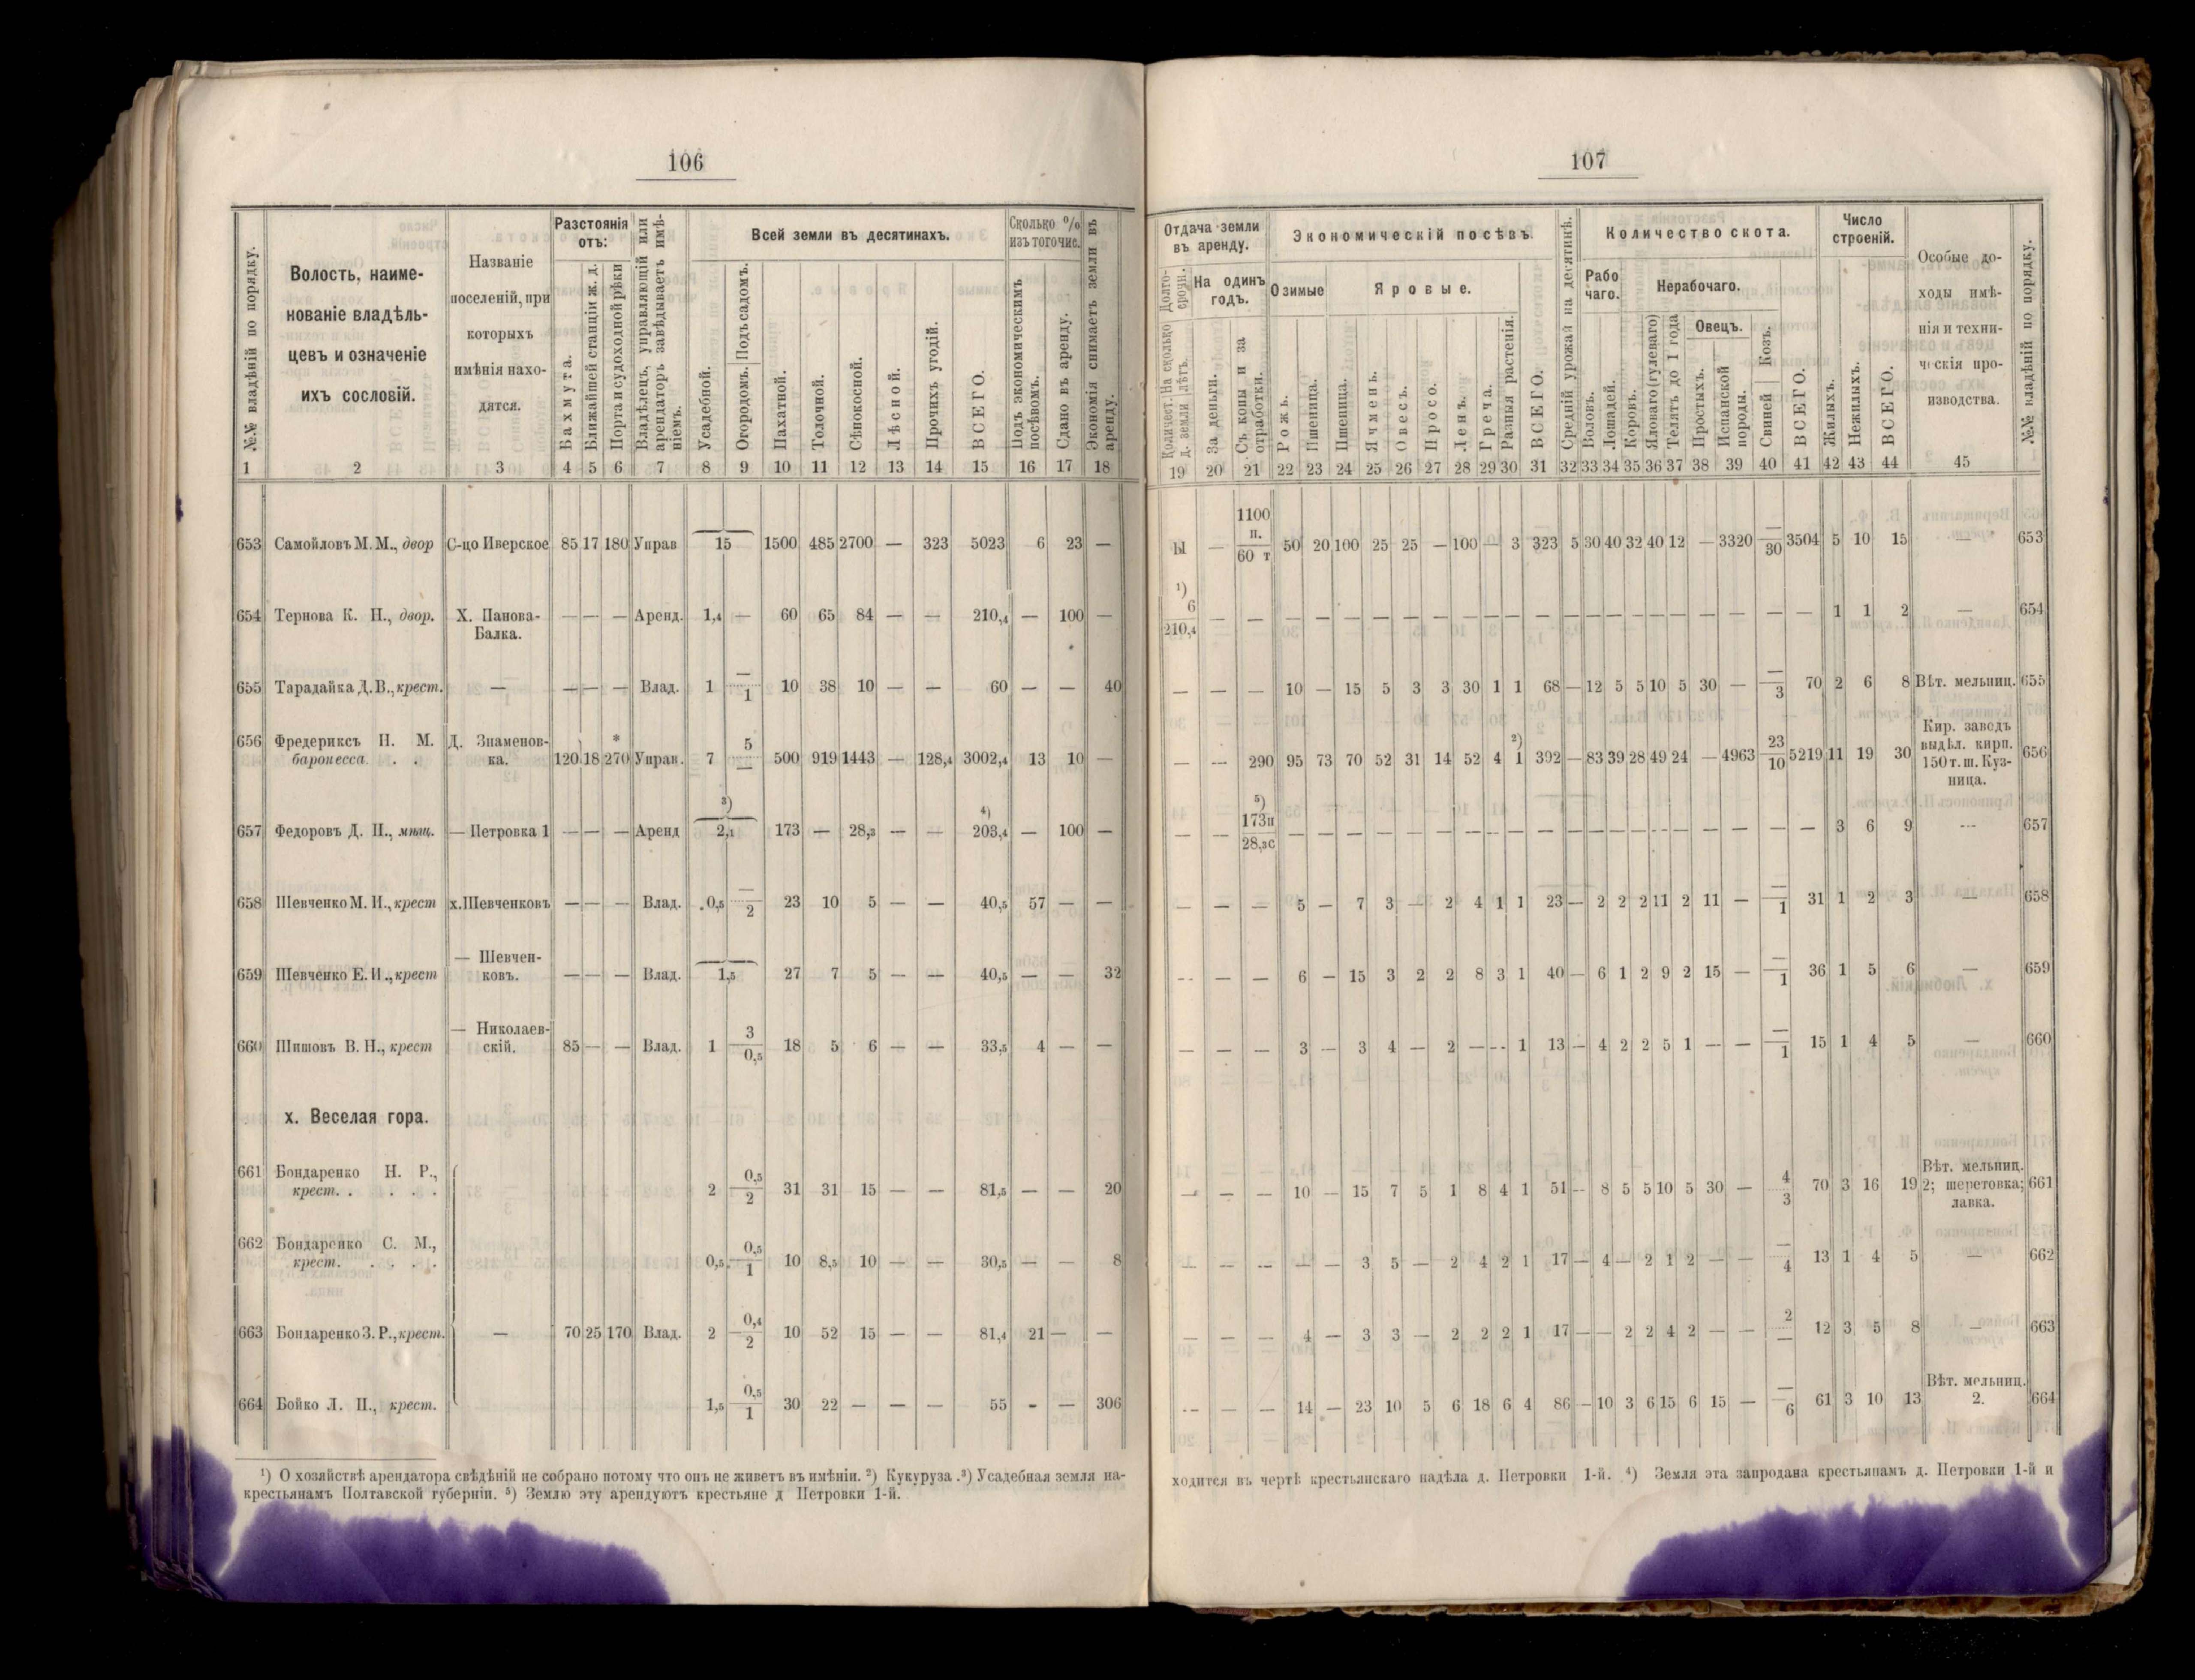 106
№№ владѣній по порядку.
Волость, наиме-
нованіе владѣль-
цевъ и означеніе
ихъ сословій.
Названіе
поселеній, при
которыхъ
имѣнія нахо-
дятся.
Разстоянія
отъ:
Бахмута.
Ближайшей станціи ж. д.
Порта и судоходной рѣки
Владѣлецъ, управляющій или
арендаторъ завѣдываетъ имѣ-
ніемъ.
Всей земли въ десятинахъ.
Усадебной.
Огородомъ. Подъ садомъ.
Пахатной.
Толочной.
Сѣнокосной.
Лѣсной.
Прочихъ угодій.
ВСЕГО.
Сколько %
изъ того чис.
Подъ экономическимъ
посѣвомъ.
Сдано въ аренду.
Экономія снимаетъ земли въ
аренду.
1 2 3 4 5 6 7 8 9 10 11 12 13 14 15 16 17 18
653 Самойловъ М. М., двор С-цо Иверское 85 17 180 Управ 15 1500 485 2700 — 323 5023 6 23 —
654 Тернова К. Н., двор. Х. Панова- — — — Аренд. 1,4 — 60 65 84 — — 210,4 — 100 —
Балка.
655 Тарадайка Д. В., крест. — — — — Влад. 1 —/1 10 38 10 — — 60 — — 40
656 Фредериксъ Н. М. Д. Знаменов- *
баронесса. . . ка. 120 18 270 Управ. 7 5/— 500 919 1443 — 128,4 3002,4 13 10 —
657 Федоровъ Д. П., мѣщ. — Петровка 1 — — — Аренд ³) 2,1 173 — 28,3 — — ⁴) 203,4 — 100 —
658 Шевченко М. И., крест х. Шевченковъ — — — Влад. 0,5 —/2 23 10 5 — — 40,5 57 — —
— Шевчен-
659 Шевченко Е. И., крест ковъ. — — — Влад. 1,5 27 7 5 — — 40,5 — — 32
— Николаев-
660 Шишовъ В. Н., крест скій. 85 — — Влад. 1 3/0,5 18 5 6 — — 33,5 4 — —
х. Веселая гора.
661 Бондаренко Н. Р.,
крест. . . . . 2 0,5/2 31 31 15 — — 81,5 — — 20
662 Бондаренко С. М.,
крест. . . . . 0,5 0,5/1 10 8,5 10 — — 30,5 — — 8
663 Бондаренко З. Р., крест. — 70 25 170 Влад. 2 0,4/2 10 52 15 — — 81,4 21 — —
664 Бойко Л. П., крест. 1,5 0,5/1 30 22 — — — 55 - — 306
¹) О хозяйствѣ арендатора свѣдѣній не собрано потому что онъ не живетъ въ имѣніи. ²) Кукуруза. ³) Усадебная земля на-
крестьянамъ Полтавской губерніи. ⁵) Землю эту арендуютъ крестьяне д Петровки 1-й.
107
Отдача земли
въ аренду.
Долго-
срочн.
Количест. На сколько
д. земли лѣтъ.
На одинъ
годъ.
За деньги.
Съ копы и за
отработки.
Экономическій посѣвъ.
Озимые
Рожь.
Пшеница.
Яровые.
Пшеница.
Ячмень.
Овесъ.
Просо.
Ленъ.
Греча.
Разныя растенія.
ВСЕГО.
Средній урожай на десятинѣ.
Количество скота.
Рабо
чаго.
Воловъ.
Лошадей.
Нерабочаго.
Коровъ.
Яловаго (гулеваго)
Телятъ до 1 года
Овецъ.
Простыхъ.
Испанской
породы.
Свиней Козъ.
ВСЕГО.
Число
строеній.
Жилыхъ.
Нежилыхъ.
ВСЕГО.
Особые до-
ходы имѣ-
нія и техни-
ческія про-
изводства.
№№ владѣній по порядку.
19 20 21 22 23 24 25 26 27 28 29 30 31 32 33 34 35 36 37 38 39 40 41 42 43 44 45
1100
п.
— 60 т 50 20 100 25 25 — 100 — 3 323 5 30 40 32 40 12 — 3320 —/30 3504 5 10 15 — 653
¹)
6
210,4 — — — — — — — — — — — — — — — — — — — — — — 1 1 2 — 654
— — — 10 — 15 5 3 3 30 1 1 68 — 12 5 5 10 5 30 — —/3 70 2 6 8 Вѣт. мельниц. 655
— — 290 95 73 70 52 31 14 52 4 ²) 1 392 — 83 39 28 49 24 — 4963 23/10 5219 11 19 30 Кир. заводъ
выдѣл. кирп.
150 т. ш. Куз-
ница. 656
⁵)
173п
— — 28,3с — — — — — — — — — — — — — — — — — — — — 3 6 9 --- 657
— — — 5 — 7 3 — 2 4 1 1 23 — 2 2 2 11 2 11 — —/1 31 1 2 3 — 658
-- — — 6 — 15 3 2 2 8 3 1 40 — 6 1 2 9 2 15 — —/1 36 1 5 6 — 659
— — — 3 — 3 4 — 2 — -- 1 13 — 4 2 2 5 1 -- — —/1 15 1 4 5 — 660
— — — 10 — 15 7 5 1 8 4 1 51 -- 8 5 5 10 5 30 — 4/3 70 3 16 19 Вѣт. мельниц.
2; шеретовка;
лавка. 661
— — -- — — 3 5 — 2 4 2 1 17 — 4 — 2 1 2 — — —/4 13 1 4 5 — 662
— — — 4 — 3 3 — 2 2 2 1 17 — — 2 2 4 2 — — 2/— 12 3 5 8 — 663
-- — — 14 — 23 10 5 6 18 6 4 86 — 10 3 6 15 6 15 — —/6 61 3 10 13 Вѣт. мельниц.
2. 664
ходится въ чертѣ крестьянскаго надѣла д. Петровки 1-й. ⁴) Земля эта запродана крестьянамъ д. Петровки 1-й и